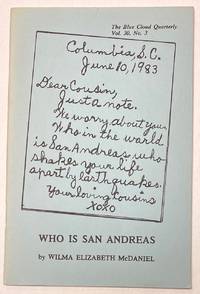 The Blue Cloud Quarterly
Vol. 30, No. 3
Columbia, S.C.
June 10, 1983
Dear Cousin,
Just a note.
We worry about you.
Who in the world
is San Andreas who
shakes your life
apart by earthquakes.
Your loving Cousins
XOXO
WHO IS SAN ANDREAS
by WILMA ELIZABETH McDANIEL